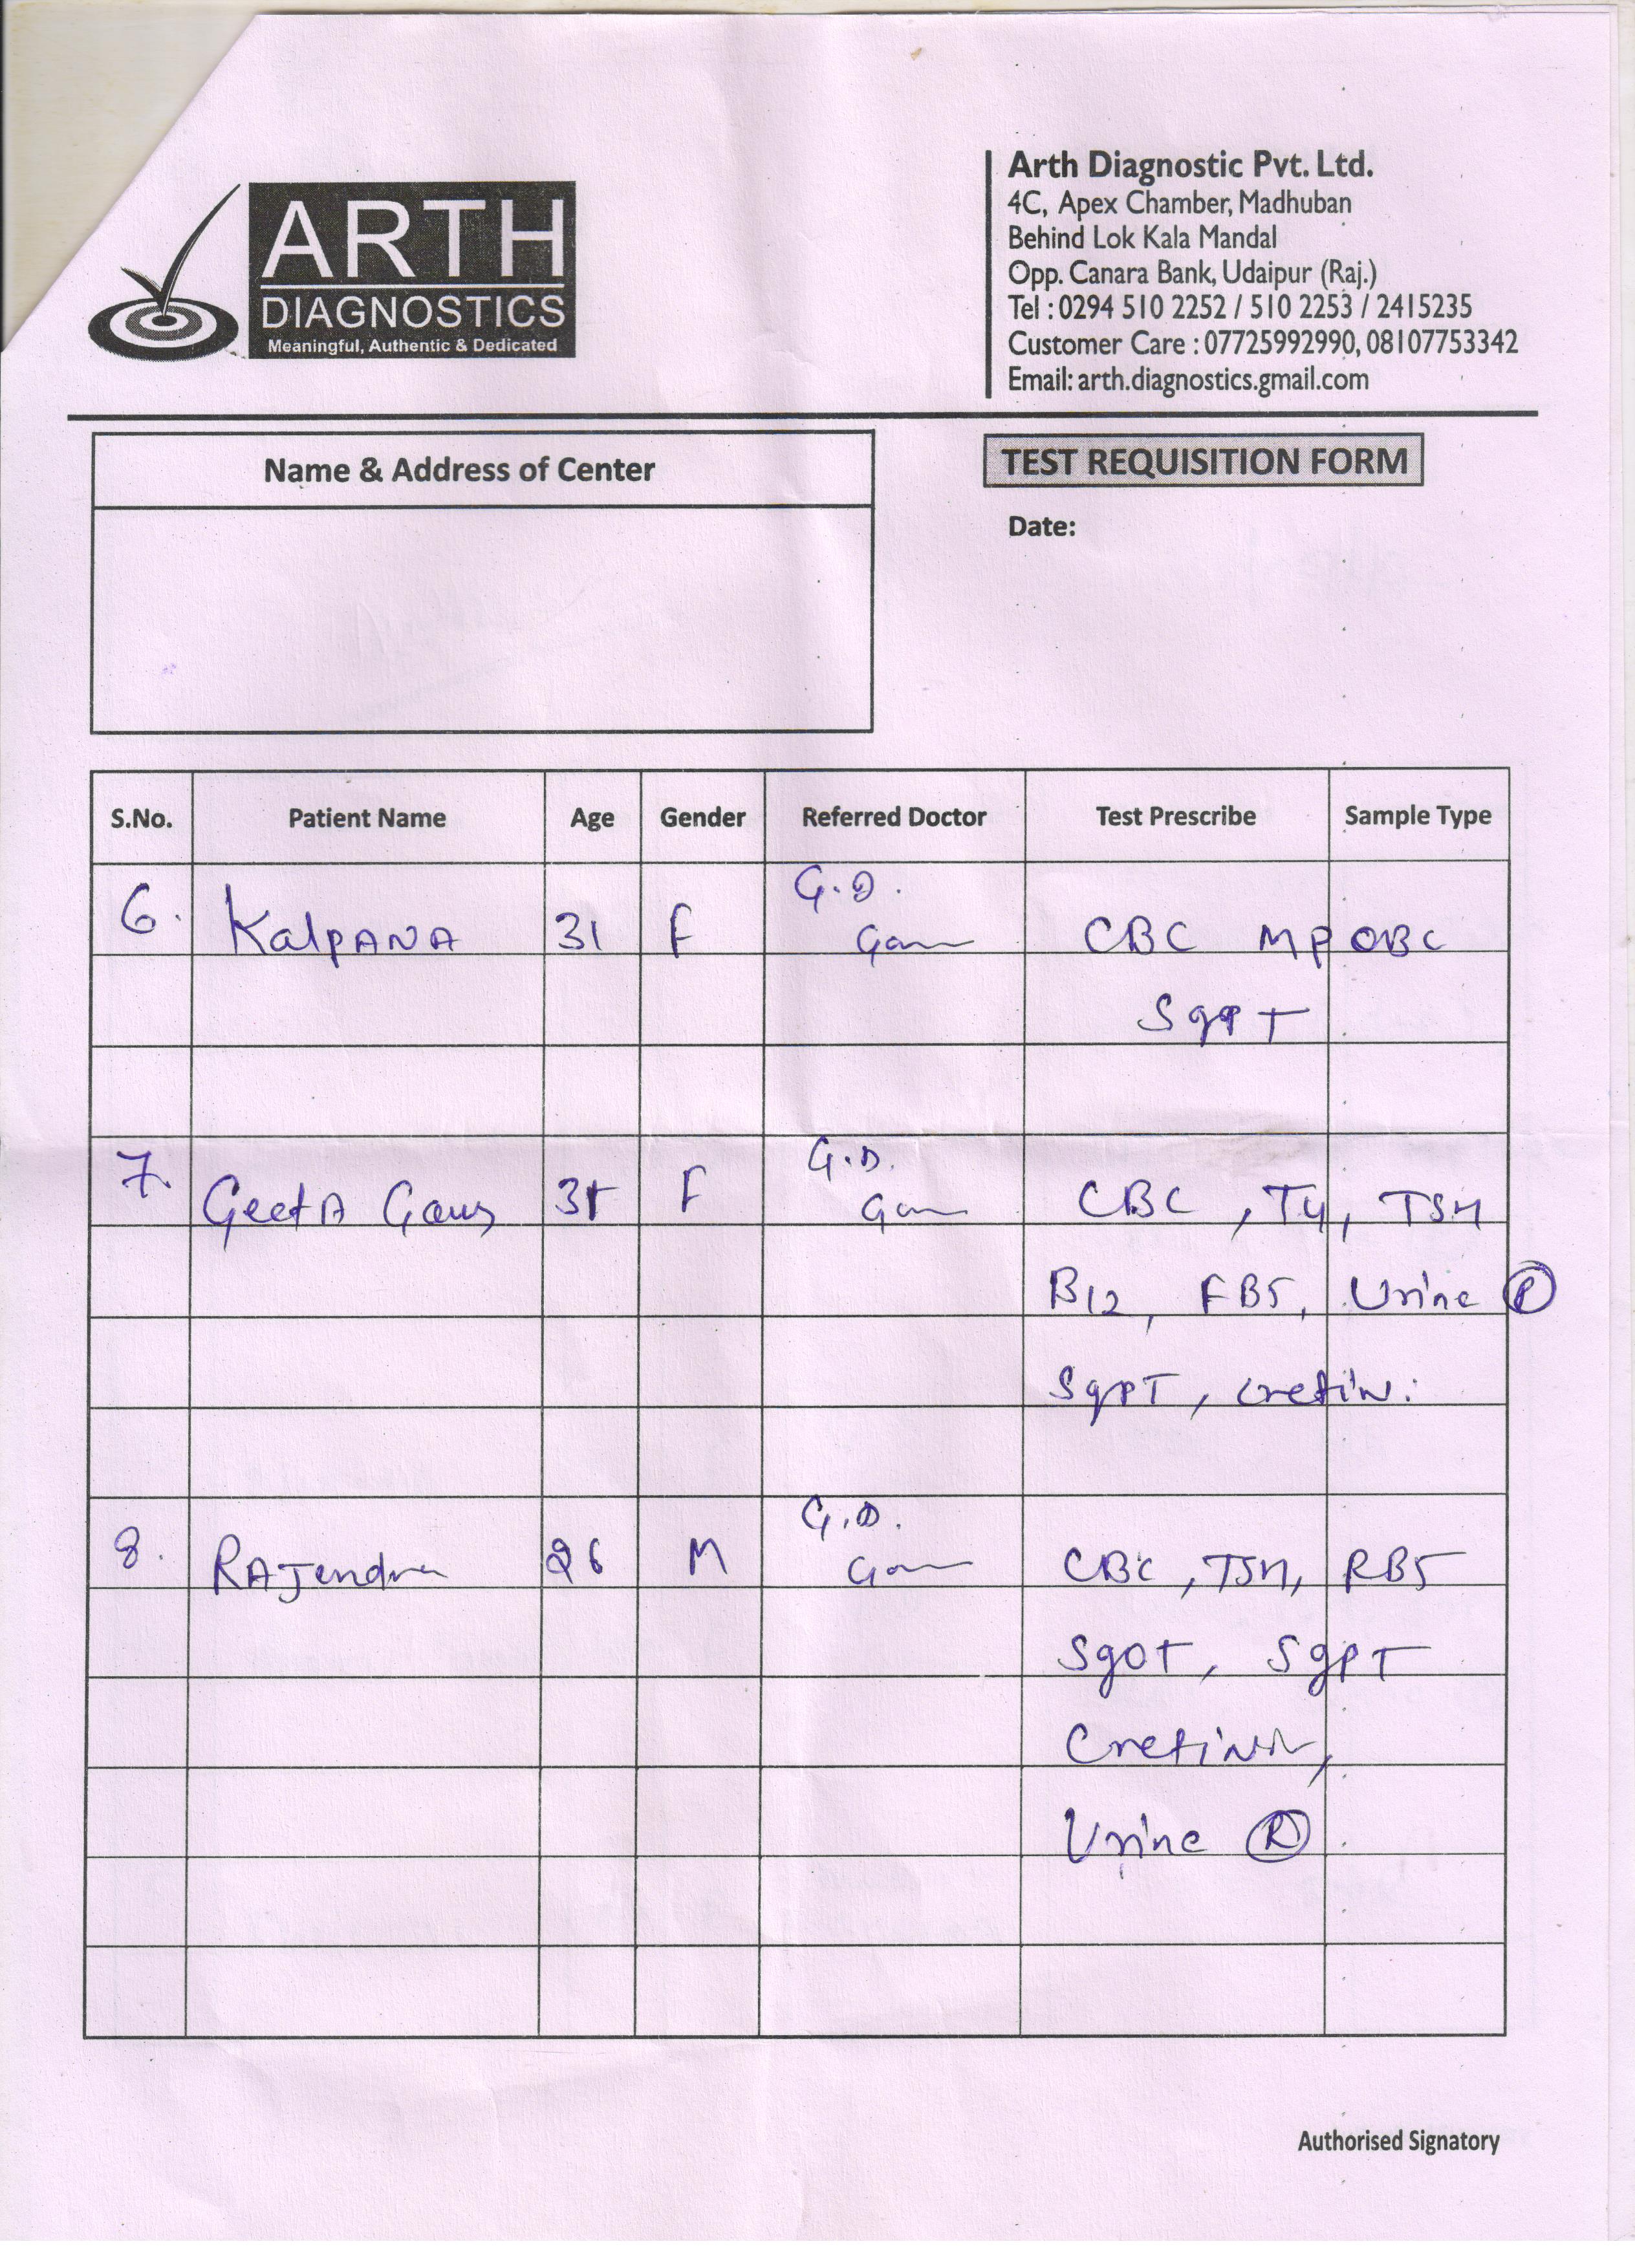 ARTH
DIAGNOSTICS
Meaningful, Authentic & Dedicated
Arth Diagnostic Pvt. Ltd.
4C, Apex Chamber, Madhuban
Behind Lok Kala Mandal
Opp. Canara Bank, Udaipur (Raj.)
Tel : 0294 510 2252 / 510 2253 / 2415235
Customer Care : 07725992990, 08107753342
Email: arth.diagnostics.gmail.com
Name & Address of Center
TEST REQUISITION FORM
Date:
S.No. Patient Name Age Gender Referred Doctor Test Prescribe Sample Type
G.D.
6. KalpANA 31 F CBC MP OBC
SgPT
G.D.
7. GeetA F CBC , T4, TSH
B12, FBS, Urine ®
SgPT, cretin.
G.D.
8. RAJendra 26 M CBC, TSH, RBS
SgOT, SgPT
Urine ®
Authorised Signatory